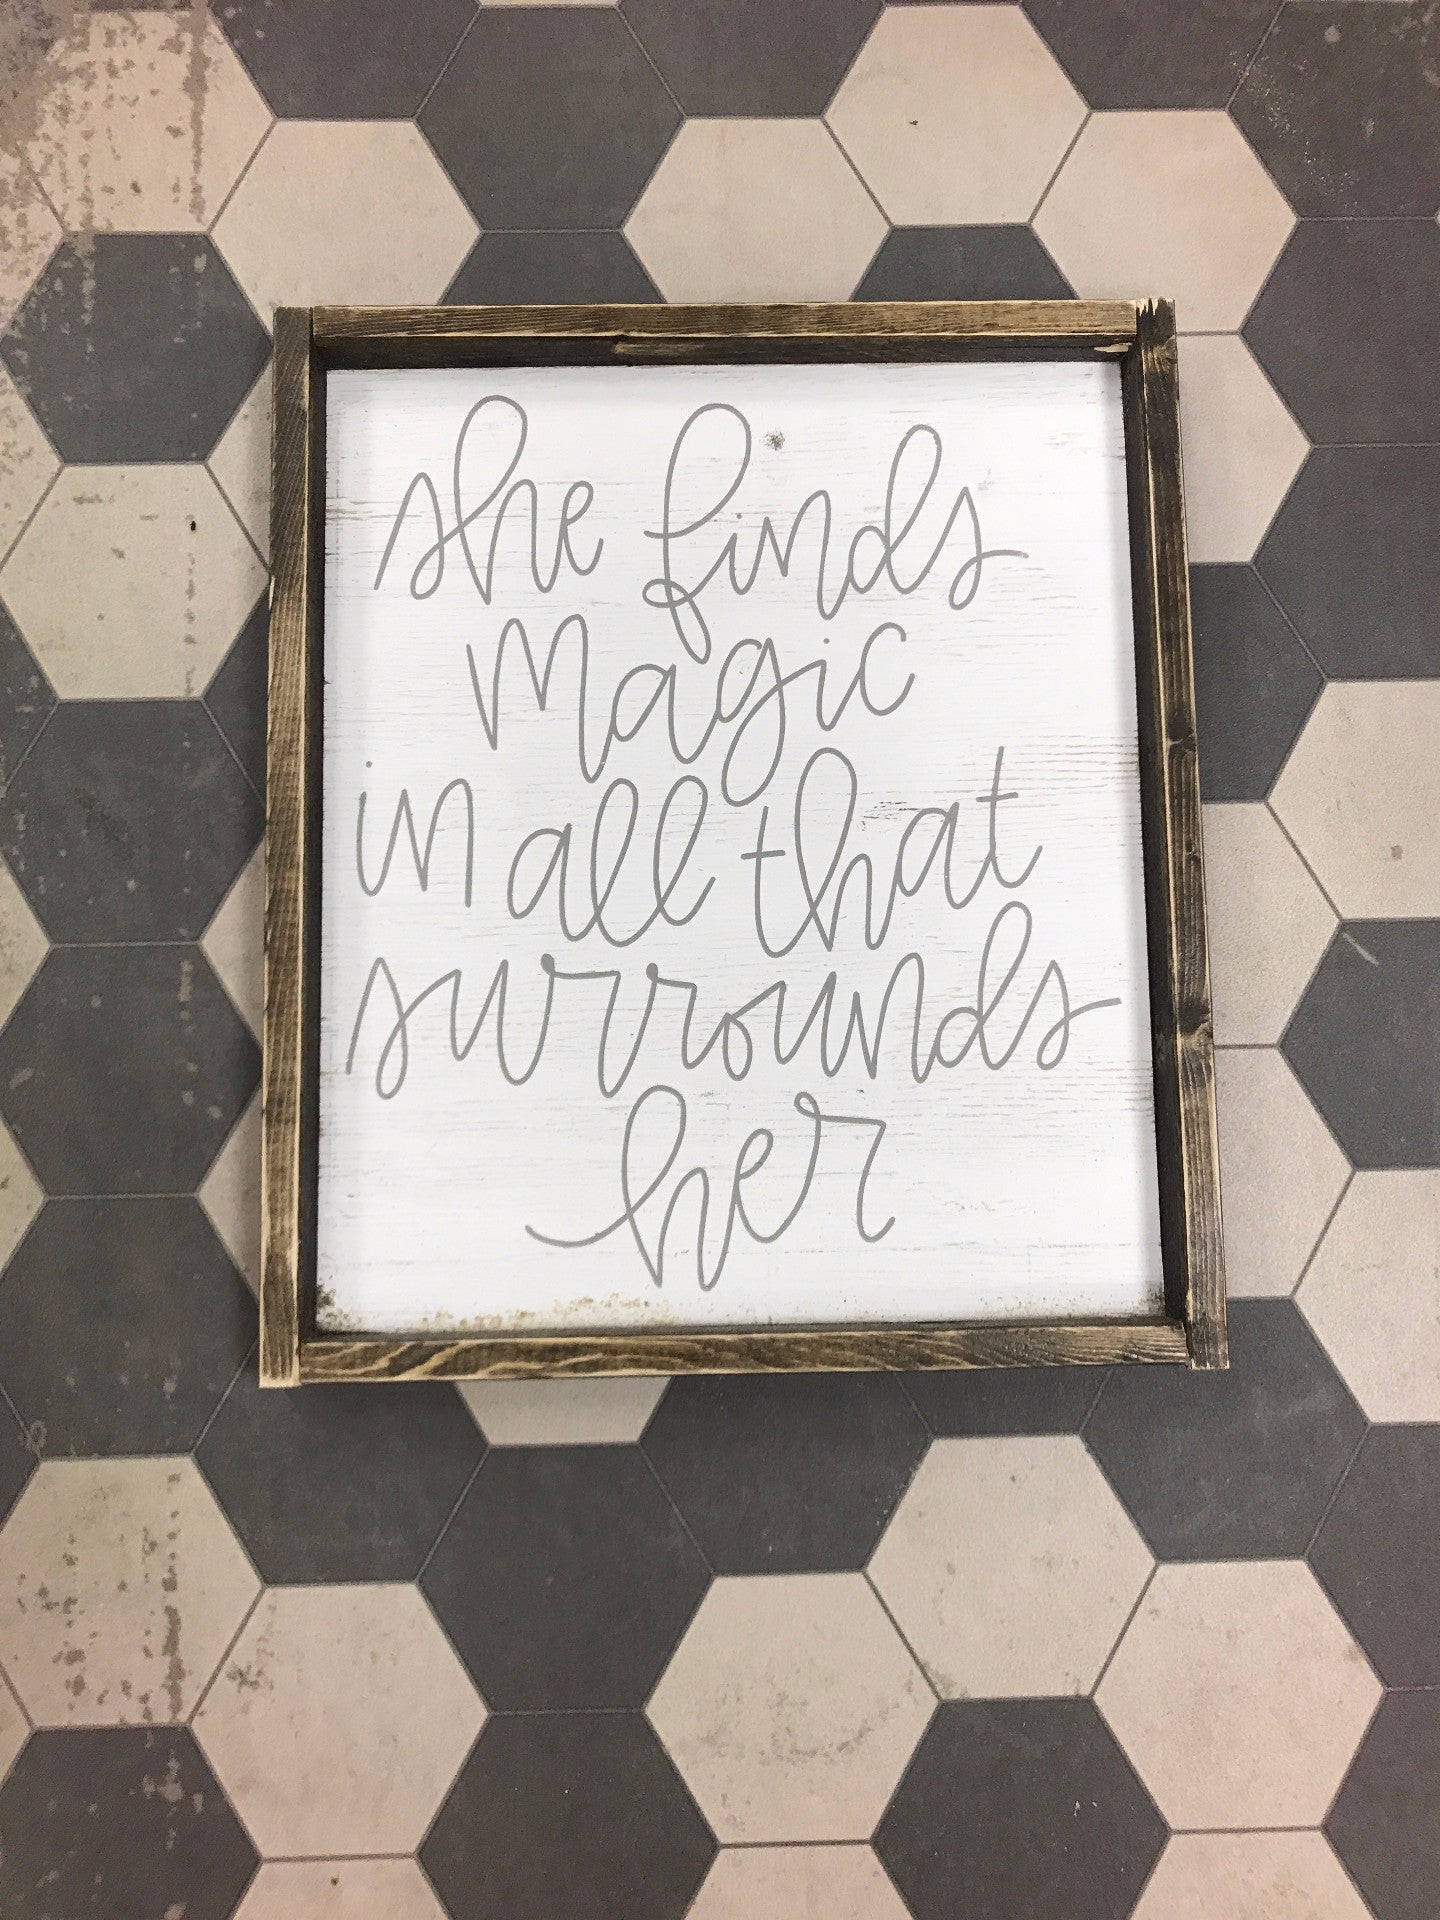 she finds
magic
in all that
surrounds
her